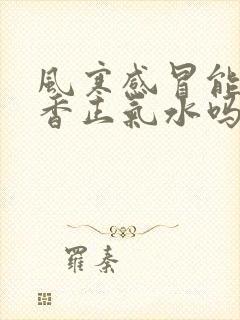 風寒感冒能
香正氣水嗎
羅秦